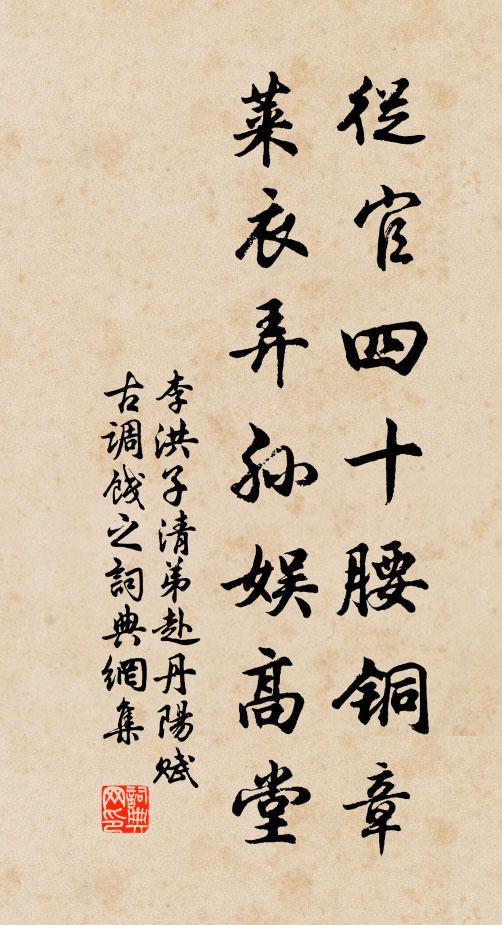 從官四十腰铜章
萊衣弄孙娱高堂
李洪子清弟赴丹陽賦
古調餞之詞典網集
詞典网印